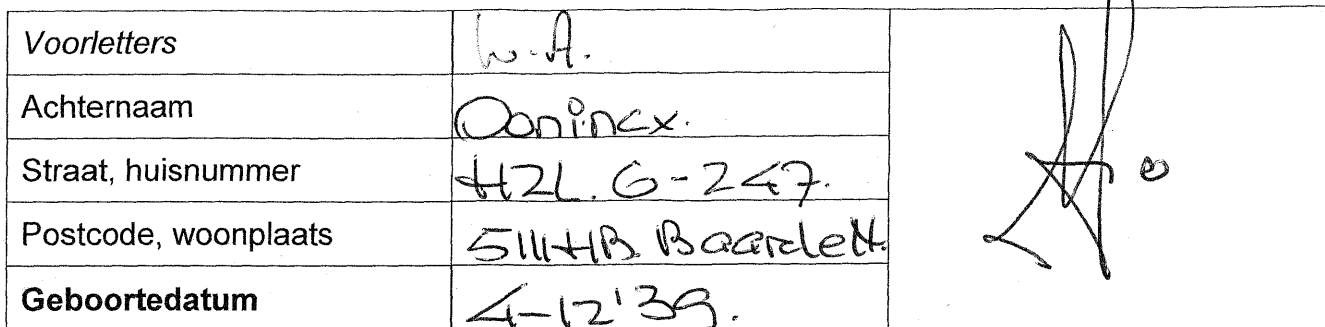 Voorletters W.A.
Achternaam Oonincx.
Straat, huisnummer HZL. 6-247.
Postcode, woonplaats 5111HB Baarle N.
Geboortedatum 4-12'39.